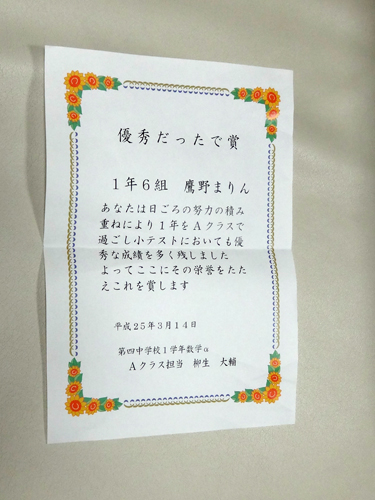 優秀だったで賞
1年6組 鷹野まりん
あなたは日ごろの努力の積み
重ねにより1年をAクラスで
過ごし小テストにおいても優
秀な成績を多く残しました
よってここにその栄誉をたた
えこれを賞します
平成25年3月14日
第四中学校1学年数学α
Aクラス担当 柳生 大輔